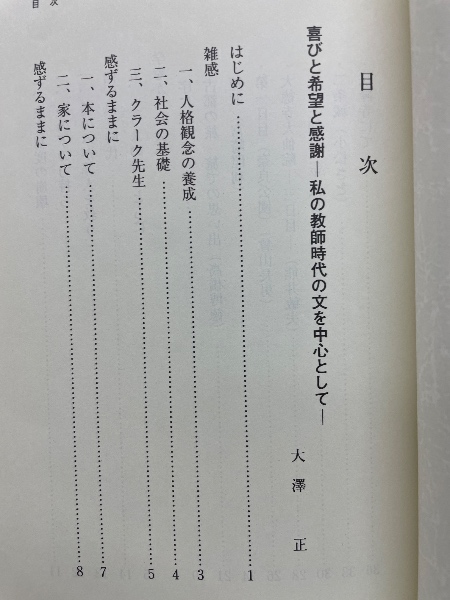 目次
目次
喜びと希望と感謝―私の教師時代の文を中心として―
大澤正
はじめに……………………1
雑感
一、人格観念の養成……………………3
二、社会の基礎……………………4
三、クラーク先生……………………5
感ずるままに
一、本について……………………7
二、家について……………………8
感ずるままに